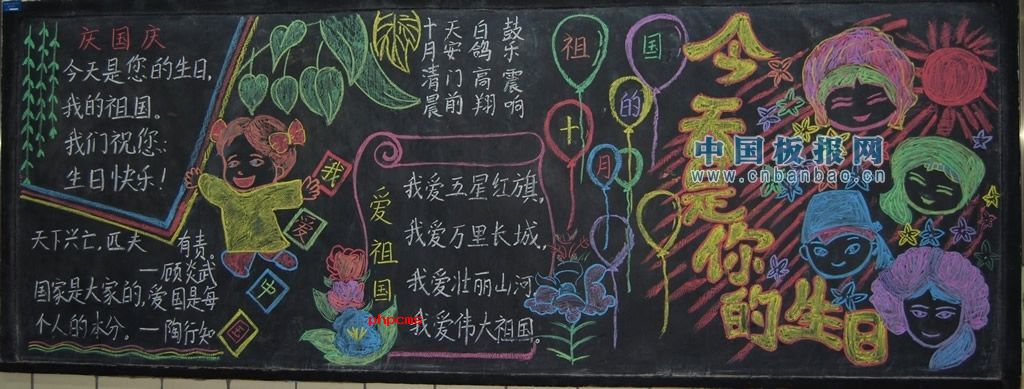 庆国庆
今天是您的生日,
我的祖国。
我们祝您:
生日快乐!
天下兴亡,匹夫 有责。
—顾炎武
国家是大家的,爱国是每
个人的本分。—陶行知
我
爱
中
国
鼓乐震响
白鸽高翔
天安门前
十月清晨
爱祖国
我爱五星红旗,
我爱万里长城,
我爱壮丽山河
我爱伟大祖国。
phpcms
祖
国
的
十
月
今天是你的生日
中国板报网
www.cnbanbao.cn